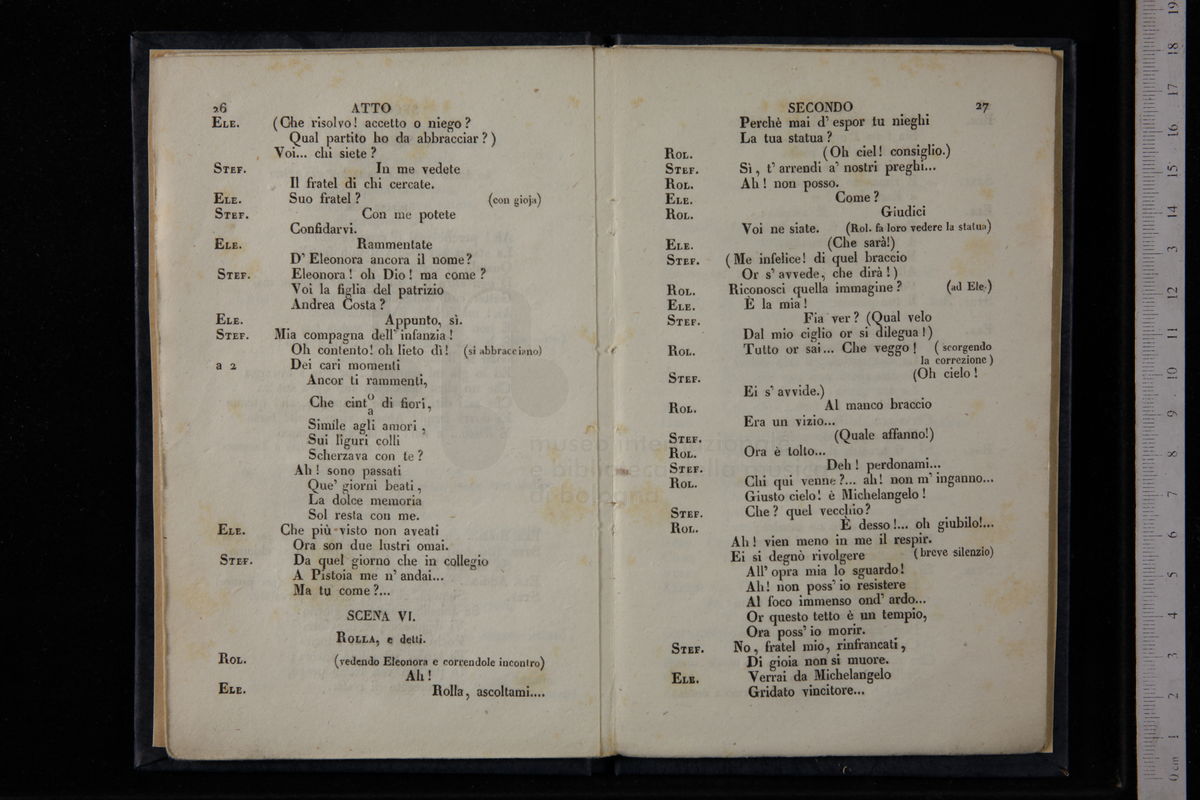 26 ATTO
ELE. (Che risolvo! accetto o niego?
Qual partito ho da abbracciar?)
Voi... chi siete?
STEF. In me vedete
Il fratel di chi cercate.
ELE. Suo fratel? (con gioja)
STEF. Con me potete
Confidarvi.
ELE. Rammentate
D' Eleonora ancora il nome?
STEF. Eleonora! oh Dio! ma come?
Voi la figlia del patrizio
Andrea Costa?
ELE. Appunto, sì.
STEF. Mia compagna dell' infanzia!
Oh contento! oh lieto dì! (si abbracciano)
a 2 Dei cari momenti
Ancor ti rammenti,
Che cint o/a di fiori,
Simile agli amori,
Sui liguri colli
Scherzava con te?
Ah! sono passati
Que' giorni beati,
La dolce memoria
Sol resta con me.
ELE. Che più visto non aveati
Ora son due lustri omai.
STEF. Da quel giorno che in collegio
A Pistoia me n' andai...
Ma tu come?...
SCENA VI.
ROLLA, e detti.
ROL. (vedendo Eleonora e correndole incontro)
Ah!
ELE. Rolla, ascoltami....
SECONDO 27
Perchè mai d' espor tu nieghi
La tua statua?
ROL. (Oh ciel! consiglio.)
STEF. Sì, t' arrendi a' nostri preghi...
ROL. Ah! non posso.
ELE. Come?
ROL. Giudici
Voi ne siate. (Rol. fa loro vedere la statua)
ELE. (Che sarà!)
STEF. (Me infelice! di quel braccio
Or s' avvede, che dirà!)
ROL. Riconosci quella immagine? (ad Ele.)
ELE. È la mia!
STEF. Fia ver? (Qual velo
Dal mio ciglio or si dilegua!)
ROL. Tutto or sai... Che veggo! (scorgendo
la correzione)
STEF. (Oh cielo!
Ei s' avvide.)
ROL. Al manco braccio
Era un vizio...
STEF. (Quale affanno!)
ROL. Ora è tolto...
STEF. Deh! perdonami...
ROL. Chi qui venne?... ah! non m' inganno...
Giusto cielo! è Michelangelo!
STEF. Che? quel vecchio?
ROL. È desso!... oh giubilo!...
Ah! vien meno in me il respir.
Ei si degnò rivolgere (breve silenzio)
All' opra mia lo sguardo!
Ah! non poss' io resistere
Al foco immenso ond' ardo...
Or questo tetto è un tempio,
Ora poss' io morir.
STEF. No, fratel mio, rinfrancati,
Di gioia non si muore.
ELE. Verrai da Michelangelo
Gridato vincitore...
museo internazionale
e biblioteca della musica
di bologna
0 cm 1 2 3 4 5 6 7 8 9 10 11 12 13 14 15 16 17 18 19